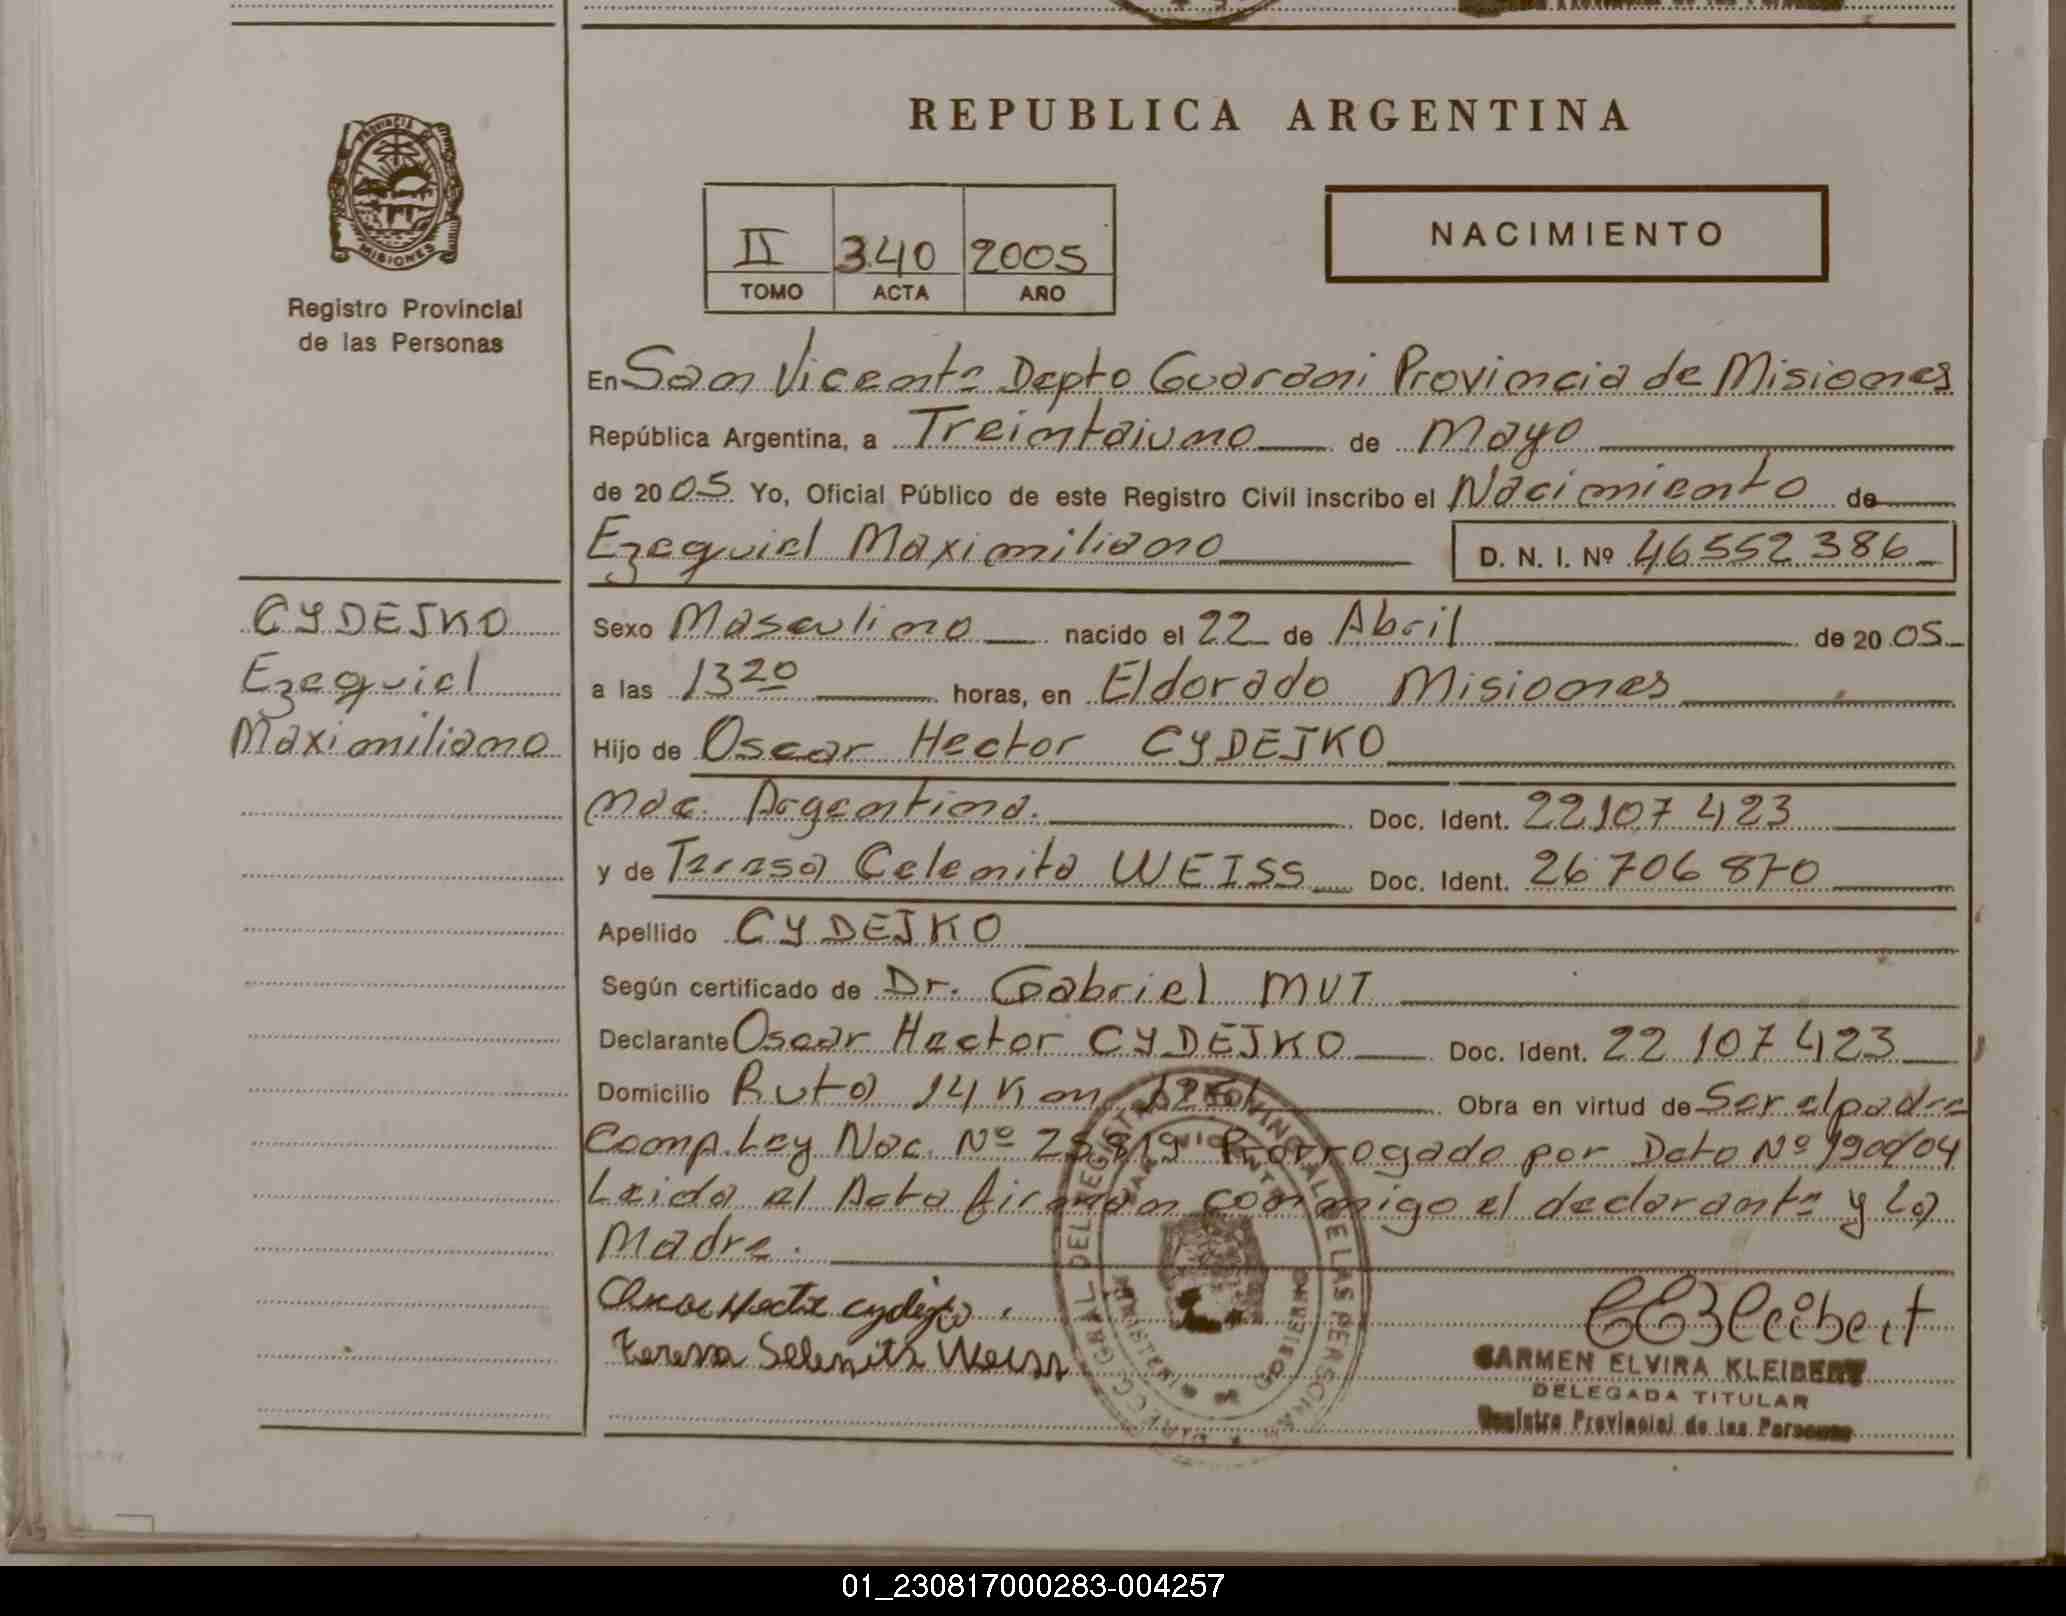 REPUBLICA ARGENTINA
PROVINCIA DE
MISIONES
Registro Provincial
de las Personas
II 340 2005
TOMO ACTA AÑO
NACIMIENTO
En San Vicente Depto Guarani Provincia de Misiones
República Argentina, a Treintaiuno de Mayo
de 2005 Yo, Oficial Público de este Registro Civil inscribo el Nacimiento de
Ezequiel Maximiliano D. N. I. Nº 46552386
CYDEJKO
Ezequiel
Maximiliano
Sexo Masculino nacido el 22 de Abril de 2005
a las 13 20 horas, en Eldorado Misiones
Hijo de Oscar Hector CYDEJKO
Nac. Argentina. Doc. Ident. 22107423
y de Teresa Celenita WEISS Doc. Ident. 26706870
Apellido CYDEJKO
Según certificado de Dr. Gabriel MUT
Declarante Oscar Hector CYDEJKO Doc. Ident. 22107423
Domicilio Ruta 14 Km Obra en virtud de Ser el padre
Comp. Ley Nac. Nº 25819 Prorrogado por Dcto Nº 1900/04
Leida el Acta firman conmigo el declarante y la
Madre.
Oscar Hector Cydejko
Teresa Selenita Weiss
CEKleibert
CARMEN ELVIRA KLEIBERT
DELEGADA TITULAR
Registro Provincial de las Personas
GRAL DEL REGISTRO PROVINCIAL DE LAS PERSONAS
SAN VICENTE
MINISTERIO DE GOBIERNO
01_230817000283-004257